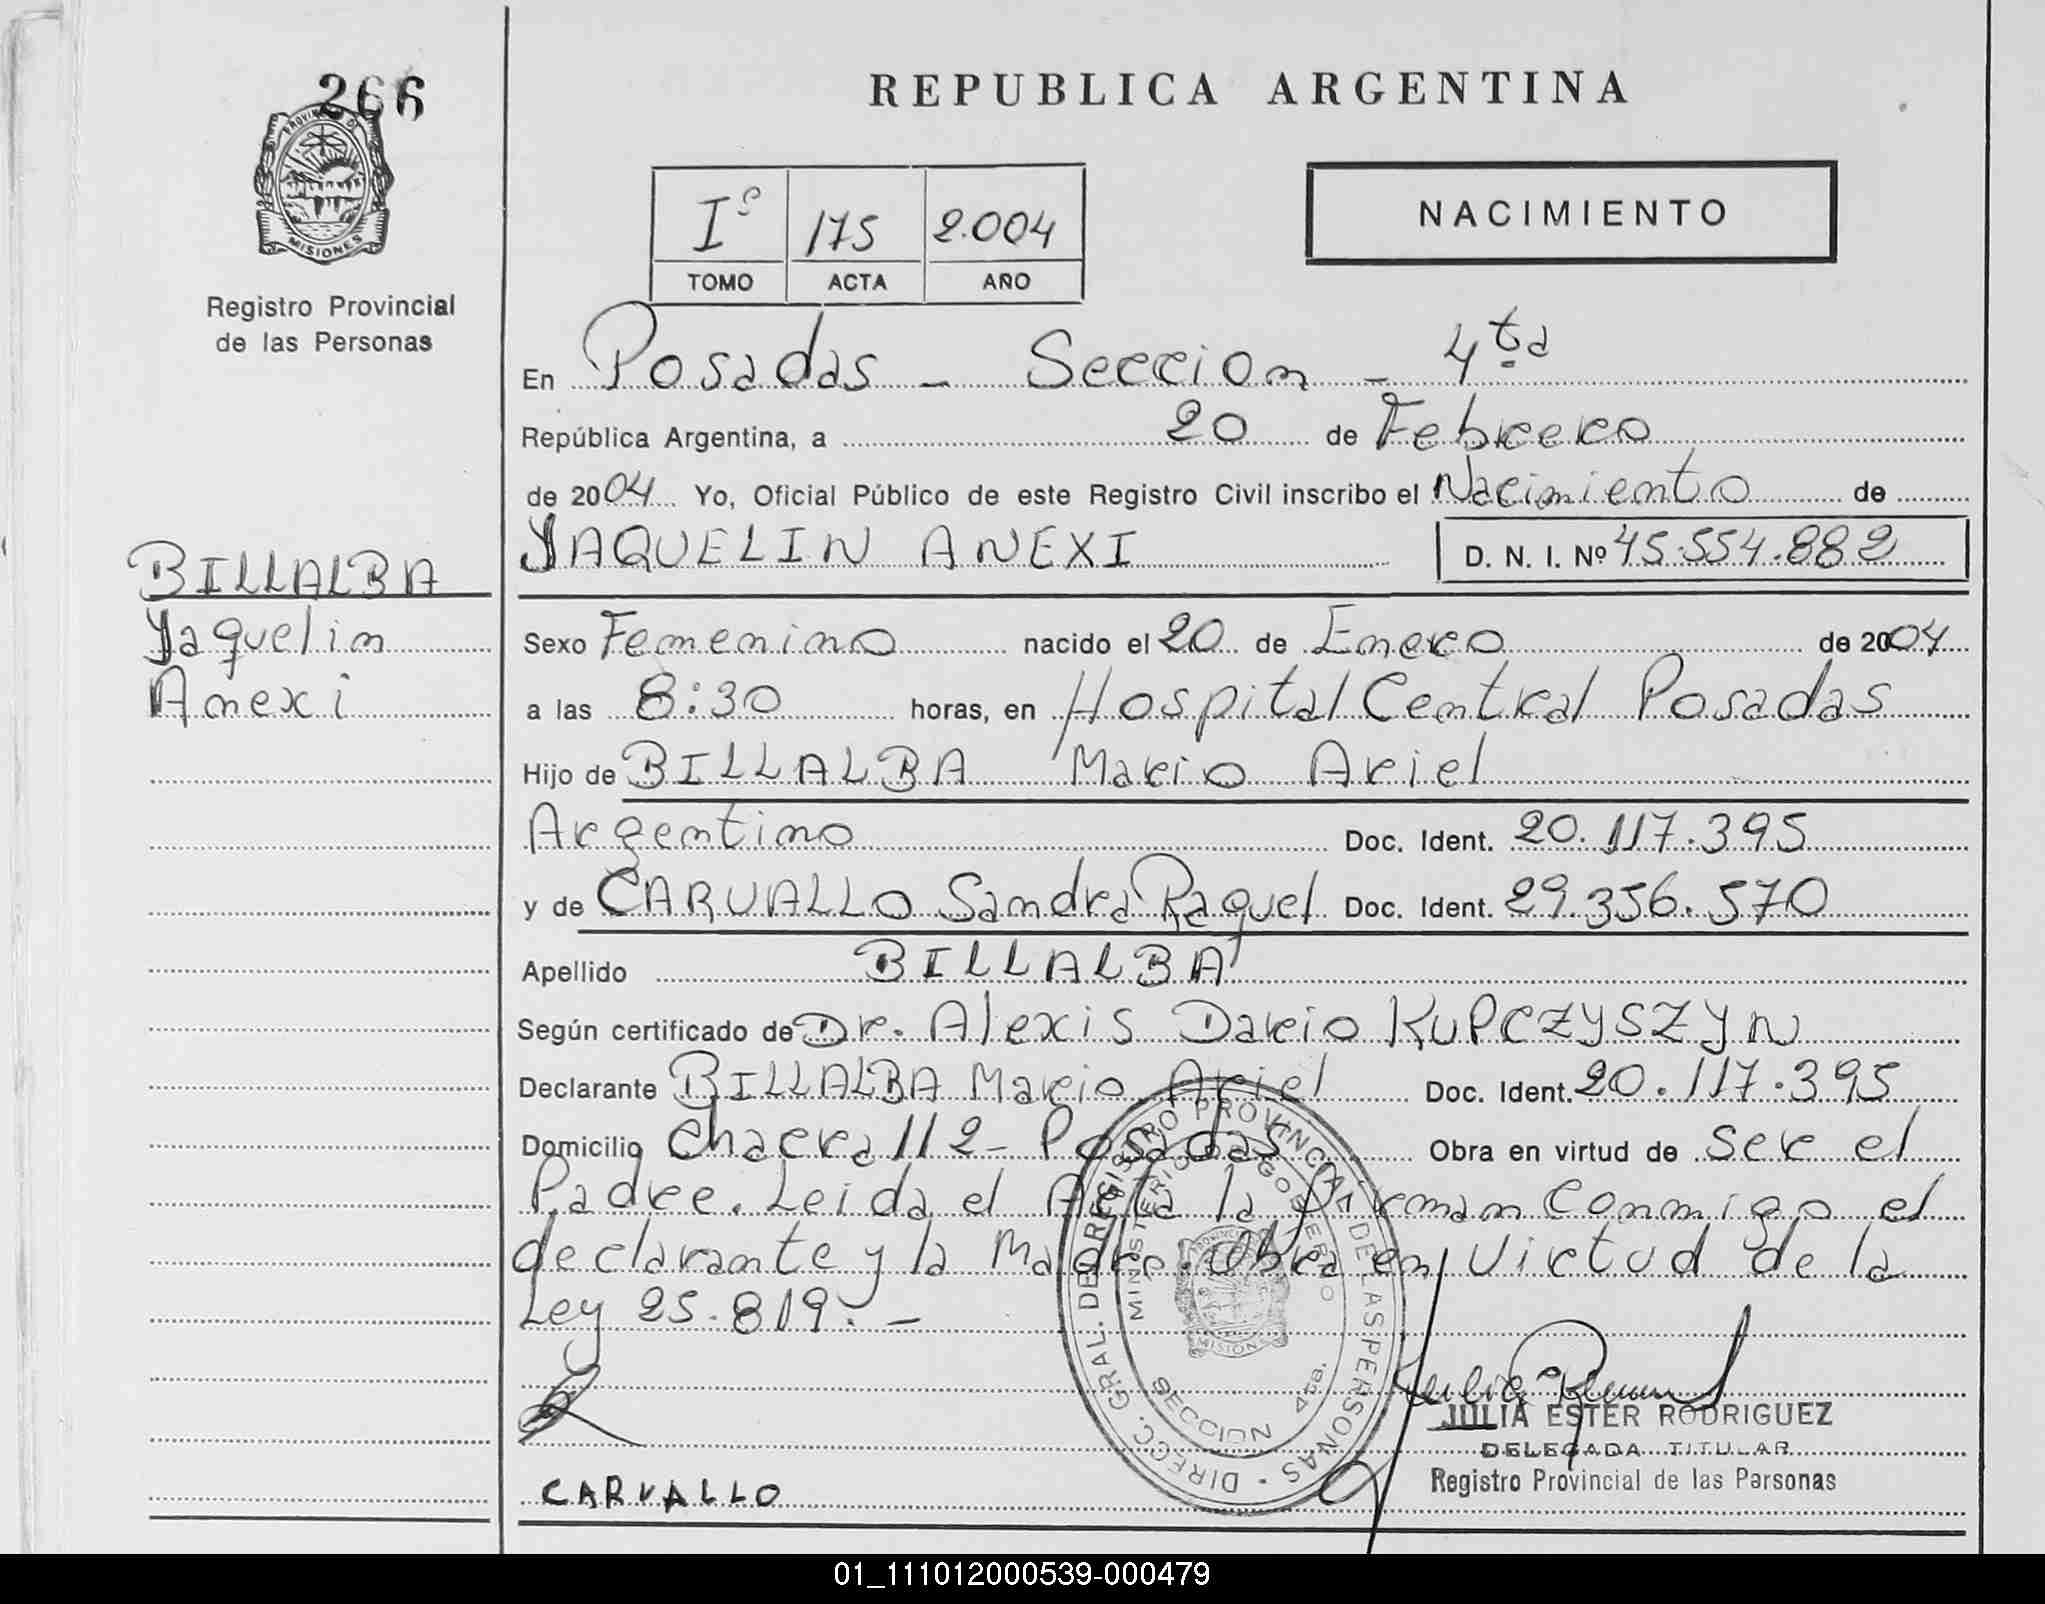 266
PROVINCIA DE
MISIONES
Registro Provincial
de las Personas
BILLALBA
Yaquelin
Anexi
REPUBLICA ARGENTINA
Iº 175 2.004
TOMO ACTA AÑO
NACIMIENTO
En Posadas - Seccion - 4ta
República Argentina, a 20 de Febrero
de 2004 Yo, Oficial Público de este Registro Civil inscribo el Nacimiento de
YAQUELIN ANEXI D. N. I. Nº 45.554.882
Sexo Femenino nacido el 20 de Enero de 2004
a las 8:30 horas, en Hospital Central Posadas
Hijo de BILLALBA Mario Ariel
Argentino Doc. Ident. 20.117.395
y de CARVALLO Sandra Raquel Doc. Ident. 29.356.570
Apellido BILLALBA
Según certificado de Dr. Alexis Dario KUPCZYSZYN
Declarante BILLALBA Mario Ariel Doc. Ident. 20.117.395
Domicilio Chacra 112- Posadas Obra en virtud de Ser el
Padre. Leida el Acta la firman Conmigo el
declarante y la Madre. Obra en Virtud de la
Ley 25.819. -
DIRECC. GRAL. DEL REGISTRO PROVINCIAL DE LAS PERSONAS
MINISTERIO DE GOBIERNO
MISIONES
SECCION 4ta.
JULIA ESTER RODRIGUEZ
DELEGADA TITULAR
Registro Provincial de las Personas
CARVALLO
01_111012000539-000479